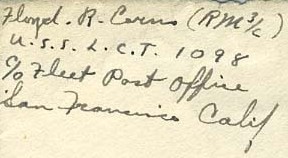 Floyd. R. Cerns (RM 3/c)
U.S.S. L.C.T. 1098
c/o Fleet Post Office
San Francisco Calif